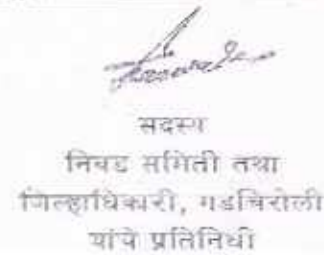 सदस्य
निवड समिती तथा
जिल्हाधिकारी, गडचिरोली
यांचे प्रतिनिधी